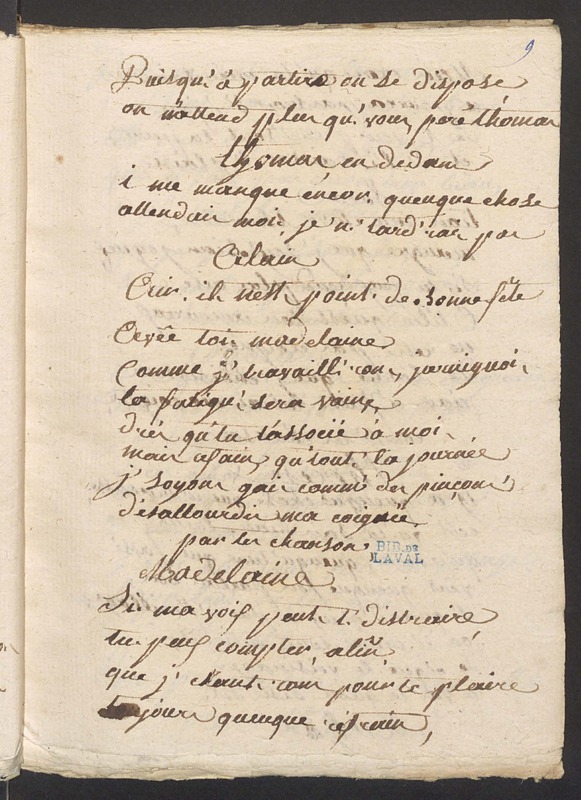 9
Puisqu'à partire on se dispose
on n'attend plus qu'vous pere thomas
thomas en dedans
i me manque encor quenque chose
attendais moi, je n' tard'rai pas
Cilain
Oui. il n'est point de bonne fête
madelaine
Comme j' travaill'rons, jarnignoi,
la fatigu' sera vaine
drès qu'tu t'associé à moi.
mais afain qu'tout' la journée
j' soyons gais comm' des pinçons
désallourdis ma coignée
par tes chansons
BIB. DE
LAVAL
Madelaine
Si ma voix peut t' distraire
tu peux compter
que j' chant'rons pour te plaire
toujours quenque r'frain,